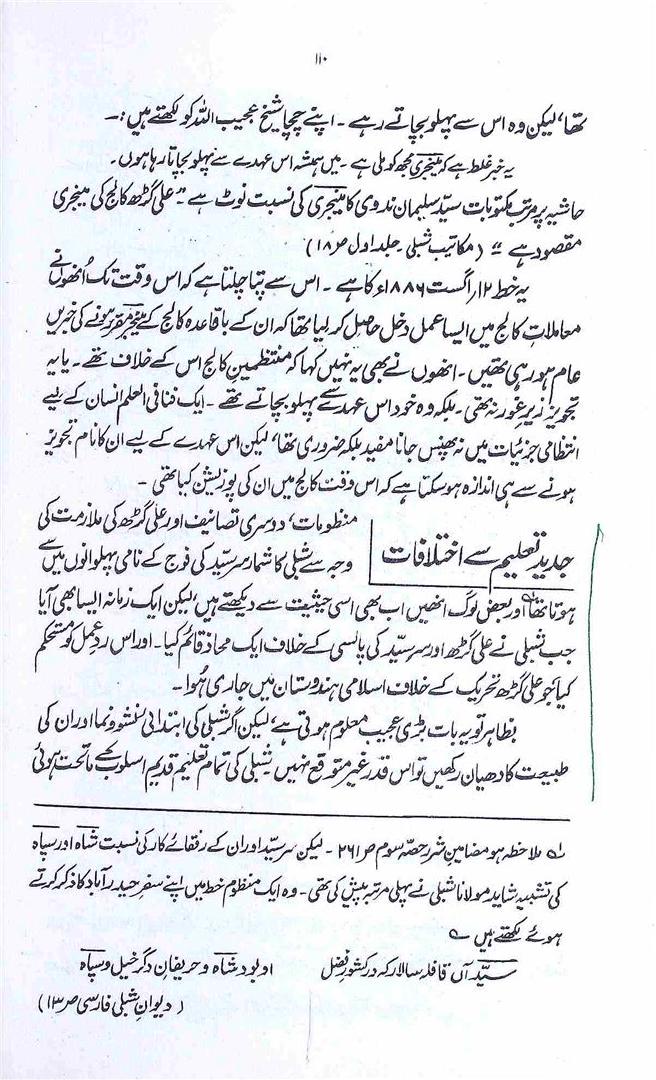 ۱۱۰
تھا، لیکن وہ اس سے پہلو بچاتے رہے ۔ اپنے چچا شیخ عجیب اللہ کو لکھتے ہیں :۔
یہ خبر غلط ہے کہ منیجری مجھ کو ملی ہے ۔ میں ہمیشہ اس عہدے سے پہلو بچاتا رہا ہوں ۔
حاشیہ پر مرتب مکتوبات سیّد سلیمان ندوی کا منیجری کی نسبت نوٹ ہے " علی گڑھ کالج کی منیجری
مقصود ہے " ( مکاتیب شبلی ۔ جلد اول ص ۱۸ )
یہ خط ۱۲؍ اگست ۱۸۸۶ء کا ہے ۔ اس سے پتا چلتا ہے کہ اس وقت تک اُنھوں نے
معاملات کالج میں ایسا عمل دخل حاصل کر لیا تھا کہ ان کے باقاعدہ کالج کے منیجر مقرر ہونے کی خبریں
عام ہو رہی تھیں ۔ انھوں نے بھی یہ نہیں کہا کہ منتظمین کالج اس کے خلاف تھے ۔ یا یہ
تجویز زیرِ غور نہ تھی ۔ بلکہ وہ خود اس عہدے سے پہلو بچاتے تھے ۔ ایک فنا فی العلم انسان کے لیے
انتظامی جزئیات میں نہ پھنس جانا مفید بلکہ ضروری تھا، لیکن اس عہدے کے لیے ان کا نام تجویز
ہونے سے ہی اندازہ ہو سکتا ہے کہ اس وقت کالج میں ان کی پوزیشن کیا تھی ۔
جدید تعلیم سے اختلافات
منظومات، دوسری تصانیف اور علی گڑھ کی ملازمت کی
وجہ سے شبلی کا شمار سرسیّد کی فوج کے نامی پہلوانوں میں سے
ہوتا تھا اور بعض لوگ انھیں اب بھی اسی حیثیت سے دیکھتے ہیں، لیکن ایک زمانہ ایسا بھی آیا
جب شبلی نے علی گڑھ اور سرسیّد کی پالسی کے خلاف ایک محاذ قائم کیا ۔ اور اس ردِ عمل کو مستحکم
کیا، جو علی گڑھ تحریک کے خلاف اسلامی ہندوستان میں جاری ہُوا ۔
بظاہر تو یہ بات بڑی عجیب معلوم ہوتی ہے، لیکن اگر شبلی کی ابتدائی نشوونما اور ان کی
طبیعت کا دھیان رکھیں تو اس قدر غیر متوقع نہیں ۔ شبلی کی تمام تعلیم قدیم اسلوب کے ماتحت ہوئی
؂۱ ملاحظہ ہو مضامینِ شرر حصّہ سوم ص ۲۶۱ ۔ لیکن سرسیّد اور ان کے رفقائے کار کی نسبت شاہ اور سپاہ
کی تشبیہ شاید مولانا شبلی نے پہلی مرتبہ پیش کی تھی ۔ وہ ایک منظوم خط میں اپنے سفرِ حیدر آباد کا ذکر کرتے
ہوئے لکھتے ہیں ؂
سیّد آں قافلہ سالار کہ در کشورِ فضل او بود شاہ و حریفانِ دگر خیل و سپاہ
( دیوانِ شبلی فارسی ص ۱۳ )